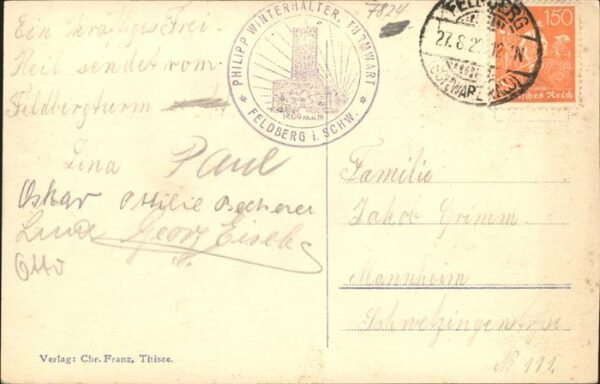 Ein kräftiges Frei-
Heil sendet vom
Feldbergturm
Lina Paul
Oskar Ottilie Becherer
Georg
Otto
PHILIPP WINTERHALTER, TURMWART
* FELDBERG I. SCHW. *
7824
FELDBERG
27.8.2
(SCHWARZWALD)
150
Deutsches Reich
Familie
Jakob Grimm
Mannheim
Schwetzingerstrasse
No 111.
Verlag: Chr. Franz, Titisee.